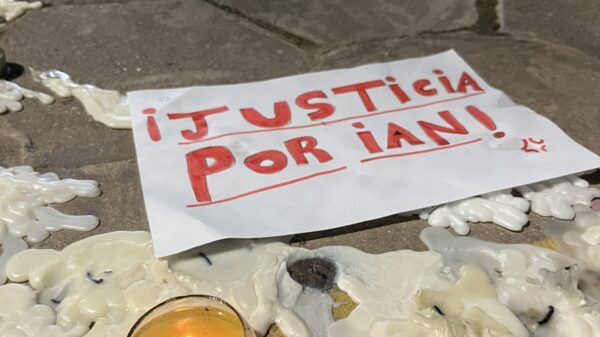 ¡JUSTiCiA
POR iAN!